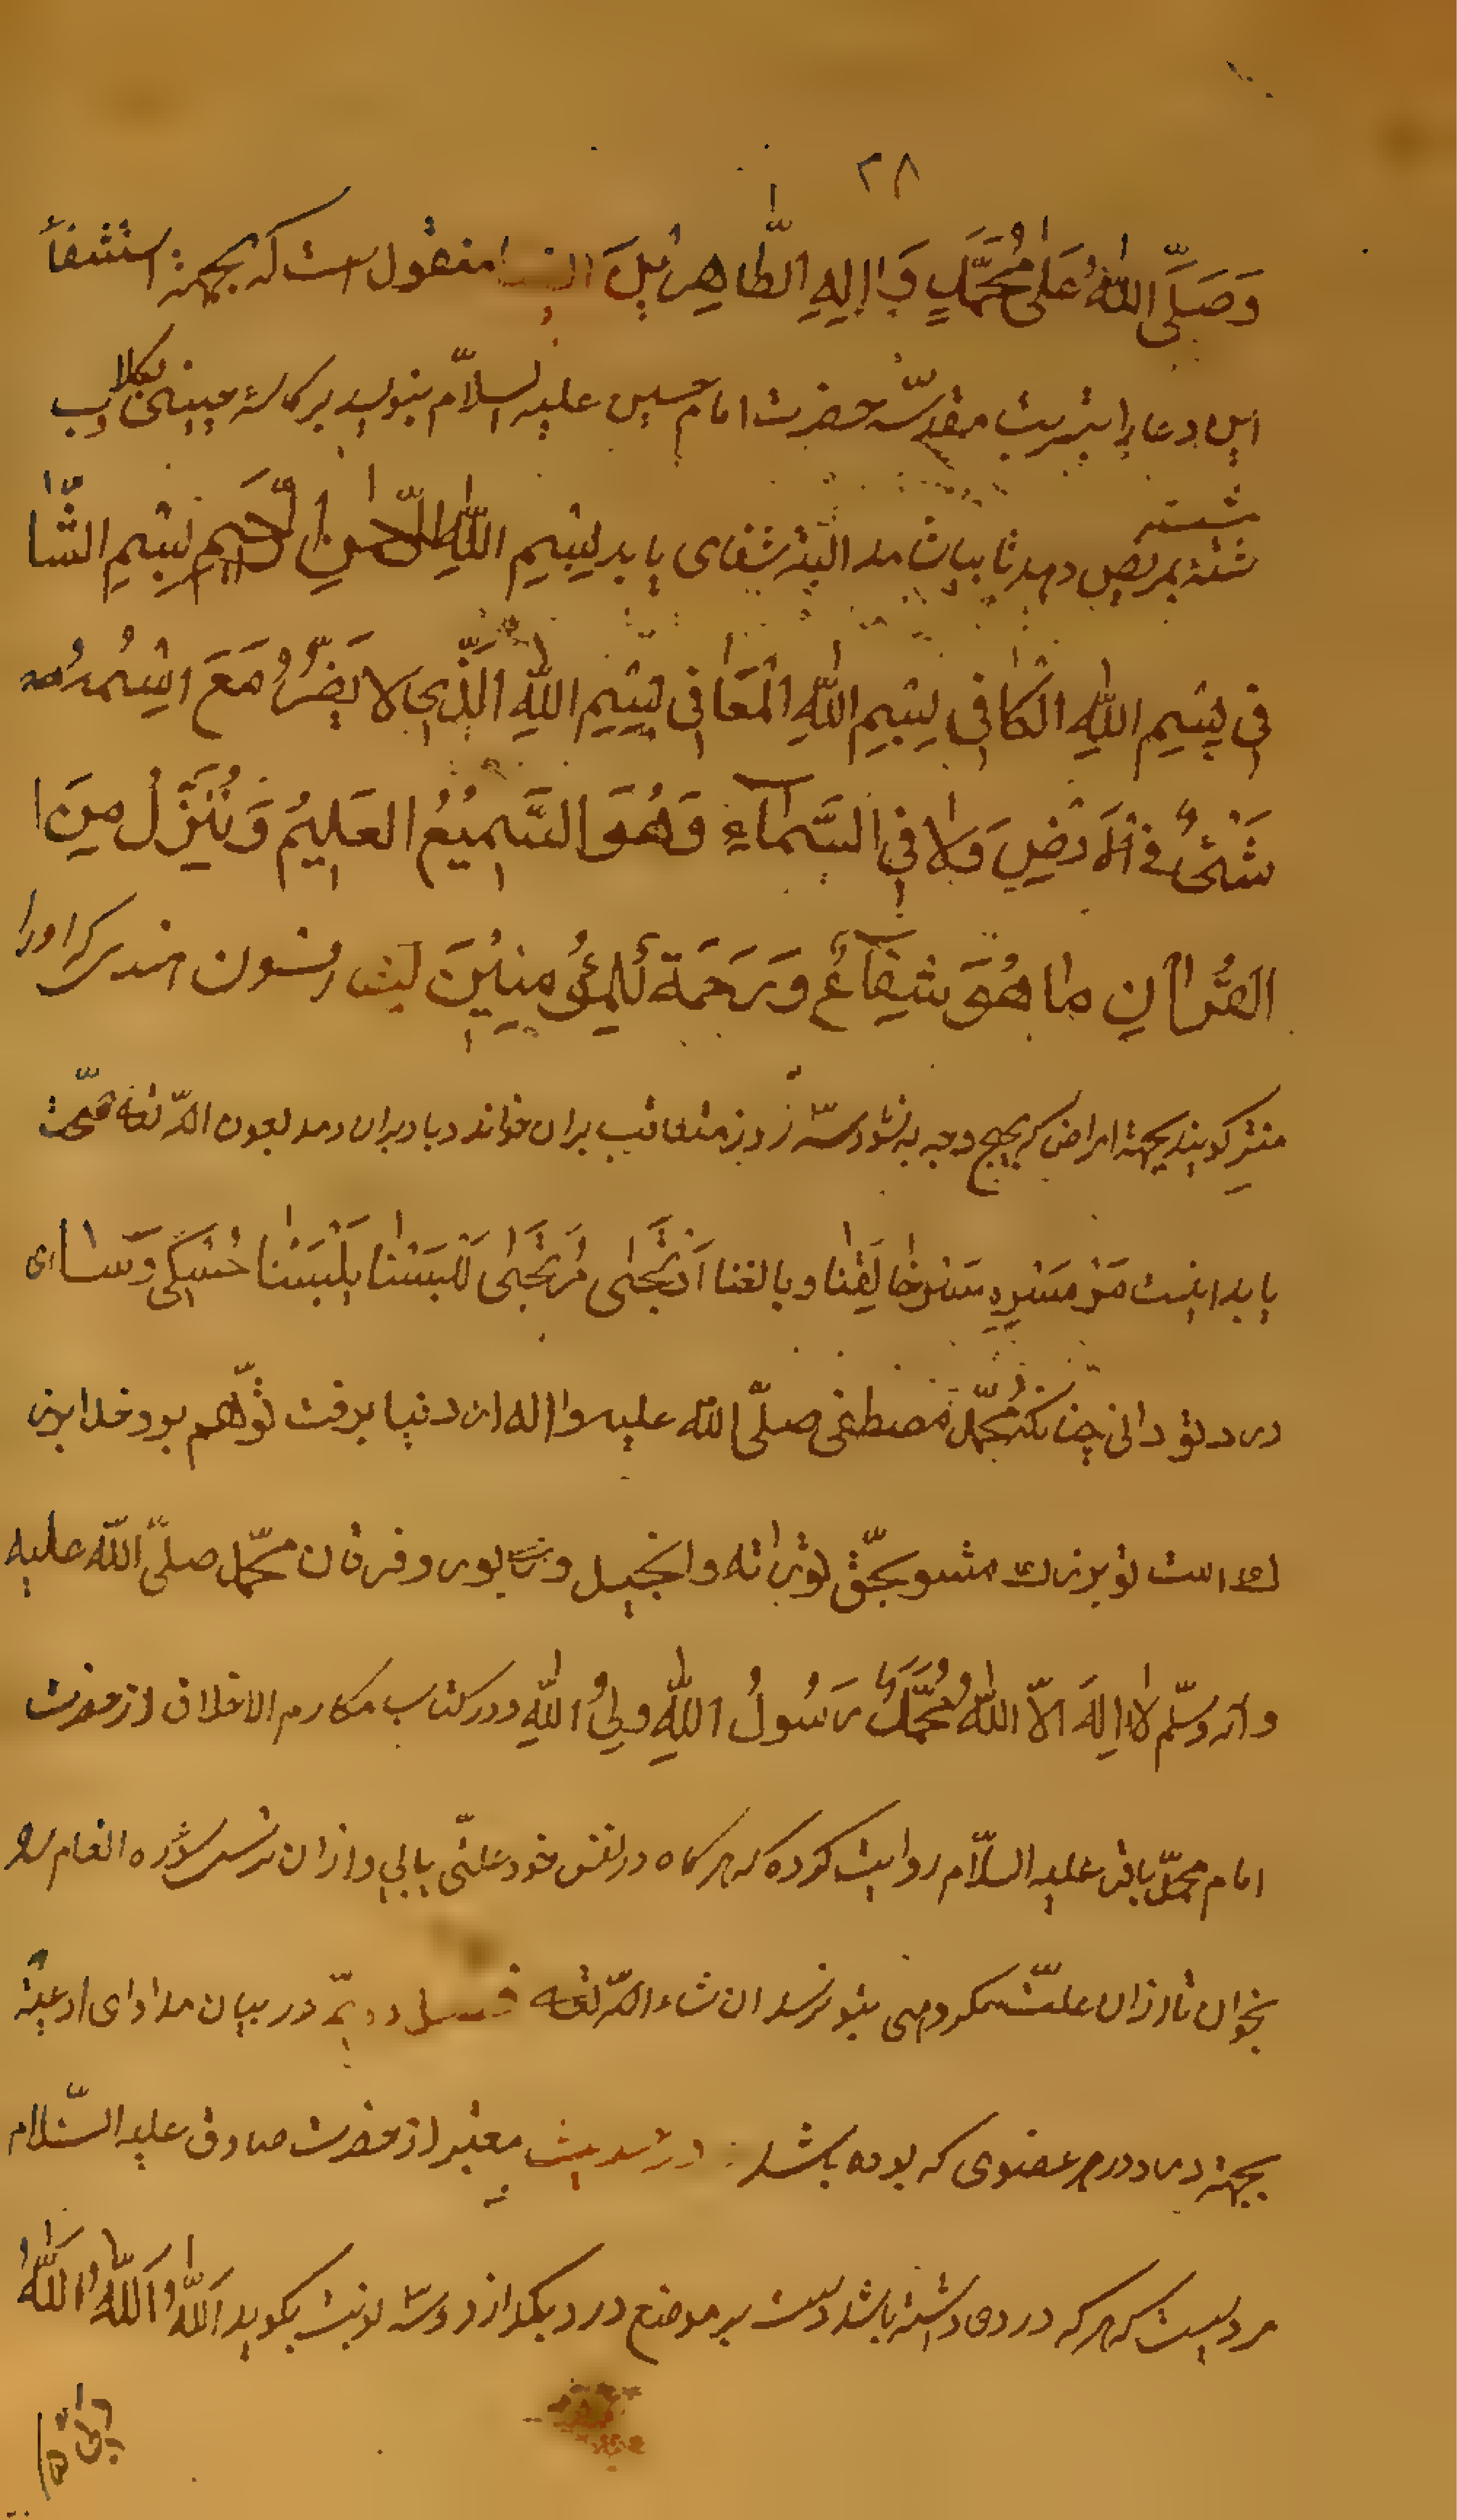 ۲۸
وَصَلَّى اللّٰهُ عَلٰى مُحَمَّدٍ وَاٰلِهِ الطَّاهِرِيْنَ ايضا منقول است که بجهة استشفاء
این دعا را بتربت مقدسه حضرت امام حسین علیه السلام بنویسد بر کاسهٔ چینی بکلاب
شسته
شسته بمریض دهد تا بیاشامد البته شفا می یابد بِسْمِ اللّٰهِ الرَّحْمٰنِ الرَّحِيْمِ بِسْمِ الشّٰا
فِى بِسْمِ اللّٰهِ الْكٰافِى بِسْمِ اللّٰهِ الْمُعٰافِى بِسْمِ اللّٰهِ الَّذِى لا يَضُرُّ مَعَ اسْمِهِ
شَىْءٌ فِى الْاَرْضِ وَلا فِى السَّمٰاءِ وَهُوَ السَّمِيْعُ الْعَلِيْمُ وَنُنَزِّلُ مِنَ ا
القُرْاٰنِ مٰا هُوَ شِفٰاءٌ وَرَحْمَةٌ لِلْمُؤْمِنِيْنَ افسون هند که او را
منتر کویند بجهة امراض که بهیچ وجه به نشود سه روز متعاقب بران خواند و باد بران دمد بعون الله تعه صحّت
یابد اینست
درد تو دانی چنانکه محمّد مصطفى صلّى اللّه علیه واله از دنیا برفت تو هم برو خدا بزرك
است تو بزرك مشو بحقّ توراته وانجیل وزبور و فرقان محمّد صلّى اللّه علیه
واله وسلّم لا اِلٰهَ الّا اللّٰهُ مُحَمَّدٌ رَسُولُ اللّٰهِ وَلِىُّ اللّٰهِ ودر کتاب مکارم الاخلاق از حضرت
امام محمّد باقر علیه السلّام روایت کرده که هر کاه در نفس خود علتی یابی و از ان ترسی سوره انعام را
بخوان تا از ان علّت مکروهی بتو نرسد ان شاء اللّه تعه فصل دویّم در بیان مداوای ادعیّه
بجهة درد در هر عضوی که بوده باشد در حدیث معتبر از حضرت صادق علیه السّلام
مرویست که هر که دردی داشته باشد دست بر موضع درد بکذارد و سه نوبت بکوید اَللّٰهُ اَللّٰهُ اَللّٰهُ
رَبِّى